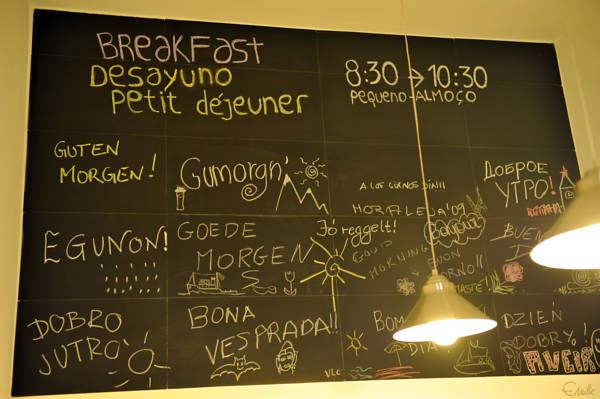 BREAKFAST
DESAYUNO
Petit déjeuner
8:30 → 10:30
PEQUENO-ALMOÇO
GUTEN
MORGEN!
Gumorgn'
ДОБРОЕ
УТРО!
EGUNON!
GOEDE
MORGEN
Jó reggelt!
GOOD
MORNING
Bonjour
BUON
DOBRO
JUTRO
BONA
VESPRADA!!
VLC
BOM
DIA
DZIEŃ
DOBRY!
AVEIR